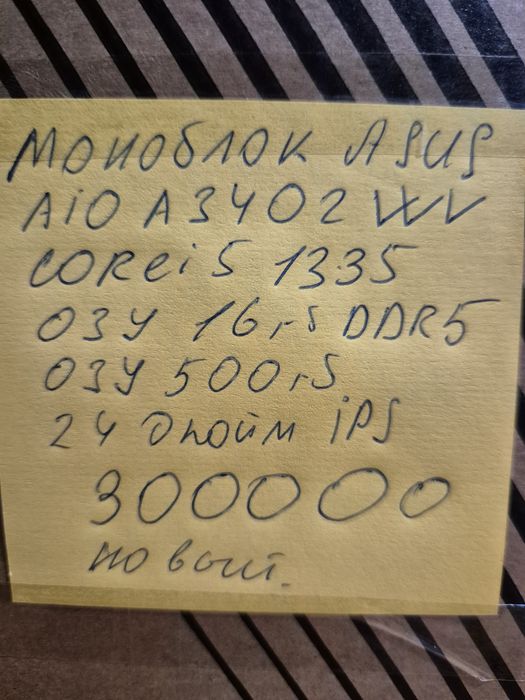 Моноблок ASUS
AiO A3402 WV
COREi5 1335
ОЗУ 16гб DDR5
ОЗУ 500гб
24 дюйм iPS
300000
новый.